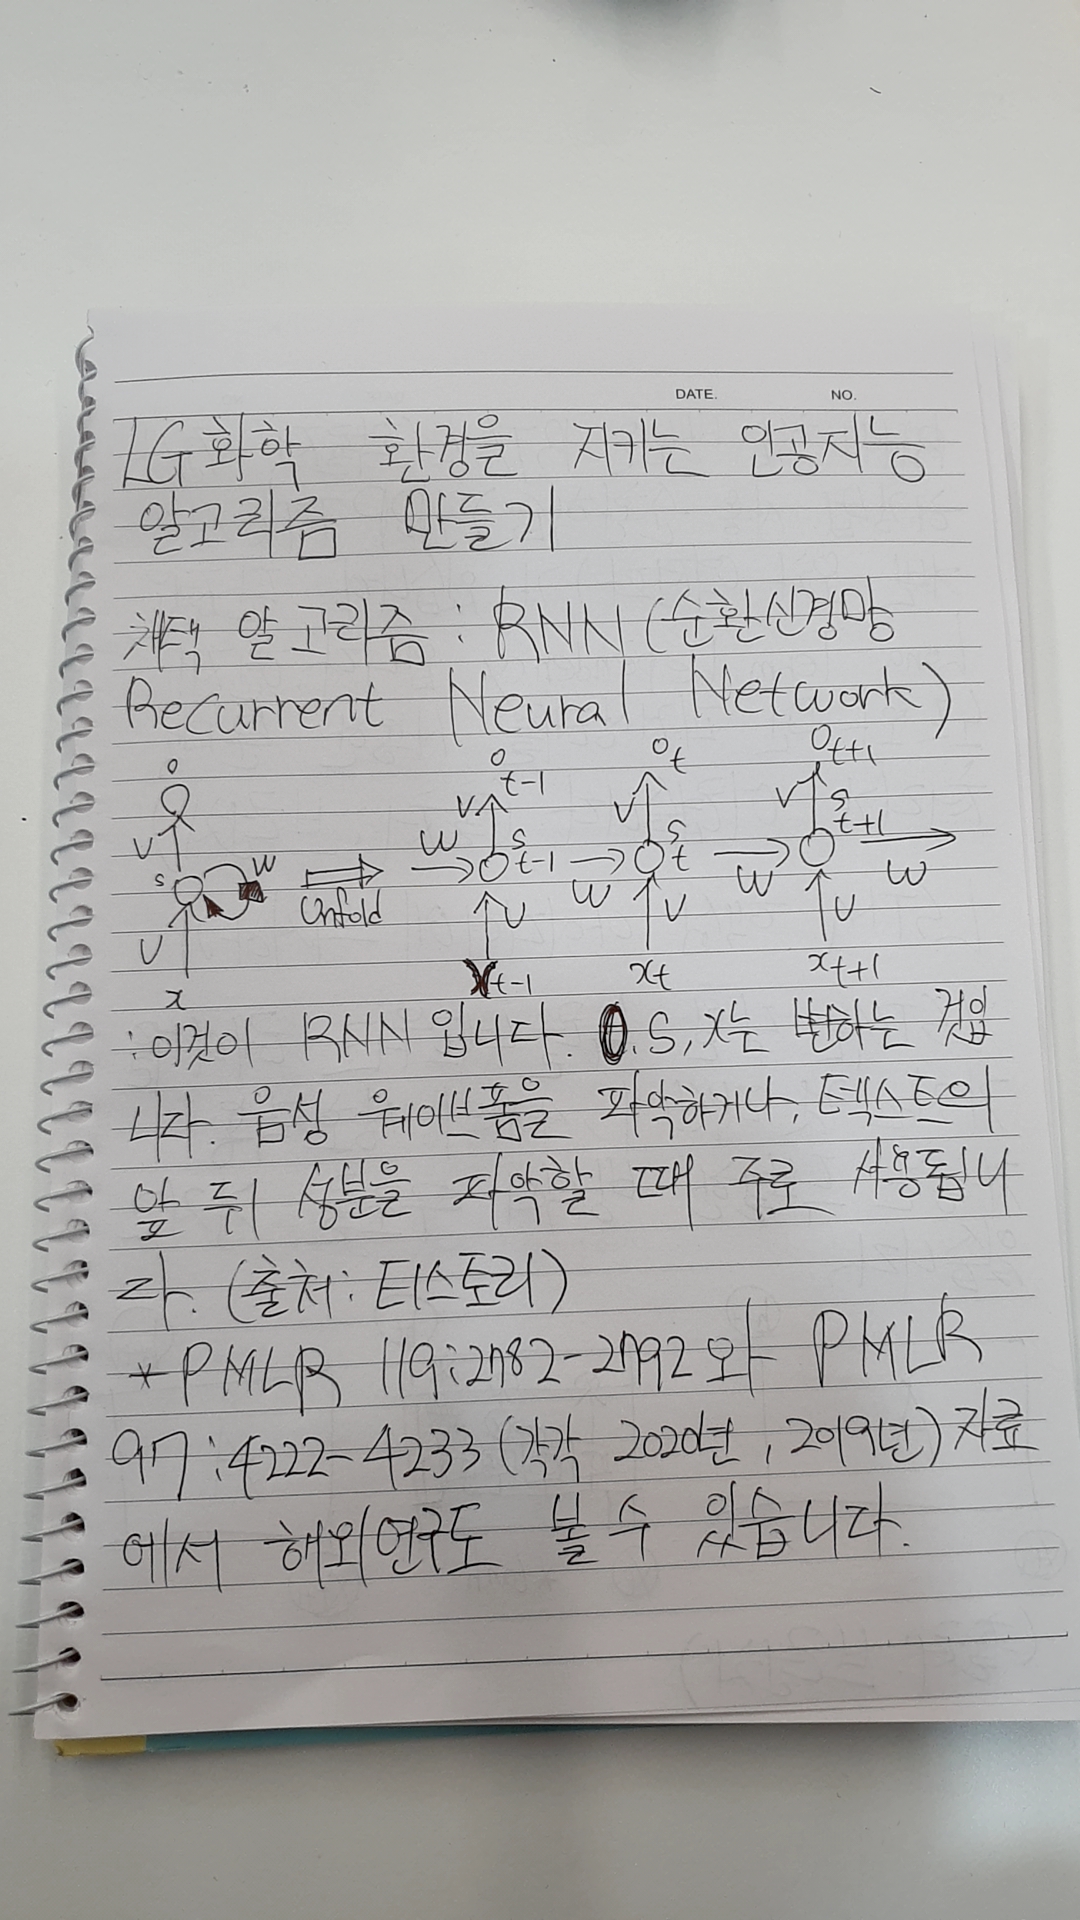 DATE. NO.
LG화학 환경을 지키는 인공지능
알고리즘 만들기
채택 알고리즘 : RNN (순환신경망
Recurrent Neural Network)
o o t-1 o t o t+1
V V V V
s W W s t-1 W s t W s t+1 W
Unfold
U U U U
x x t-1 x t x t+1
: 이것이 RNN 입니다. O, S, x는 변하는 것입
니다. 음성 웨이브폼을 파악하거나, 텍스트의
앞 뒤 성분을 파악할 때 주로 사용됩니
다. (출처: 티스토리)
* PMLR 119:2782-2792 와 PMLR
97:4222-4233 (각각 2020년, 2019년) 자료
에서 해외연구도 볼 수 있습니다.